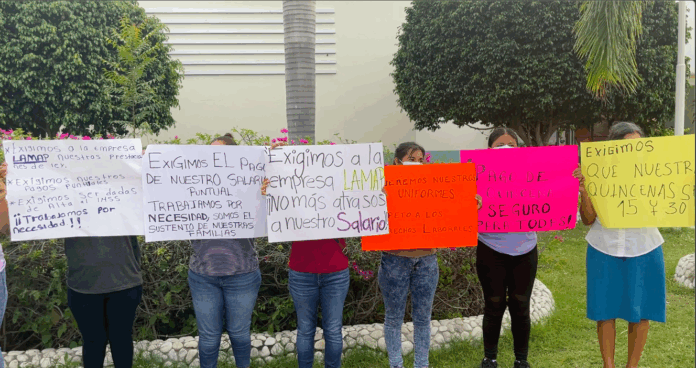 Exigimos a la empresa
LAMAP nuestras Prestacio
nes de ley.
Exigimos nuestros
Pagos Puntuales
Exigimos ser dados
de Alta al IMSS
¡¡Trabajamos por
necesidad!!
EXIGIMOS EL PAGO
DE NUESTRO SALARIO
PUNTUAL
TRABAJAMOS POR
NECESIDAD, SOMOS EL
SUSTENTO DE NUESTRAS
FAMILIAS
Exigimos a la
empresa LAMAP
¡NO más atrasos
a nuestro Salario!
NUESTROS
UNIFORMES
A LOS
Laborales
DE
SEGURO
Exigimos
QUE NUESTRAS
QUINCENAS S
15 Y 30